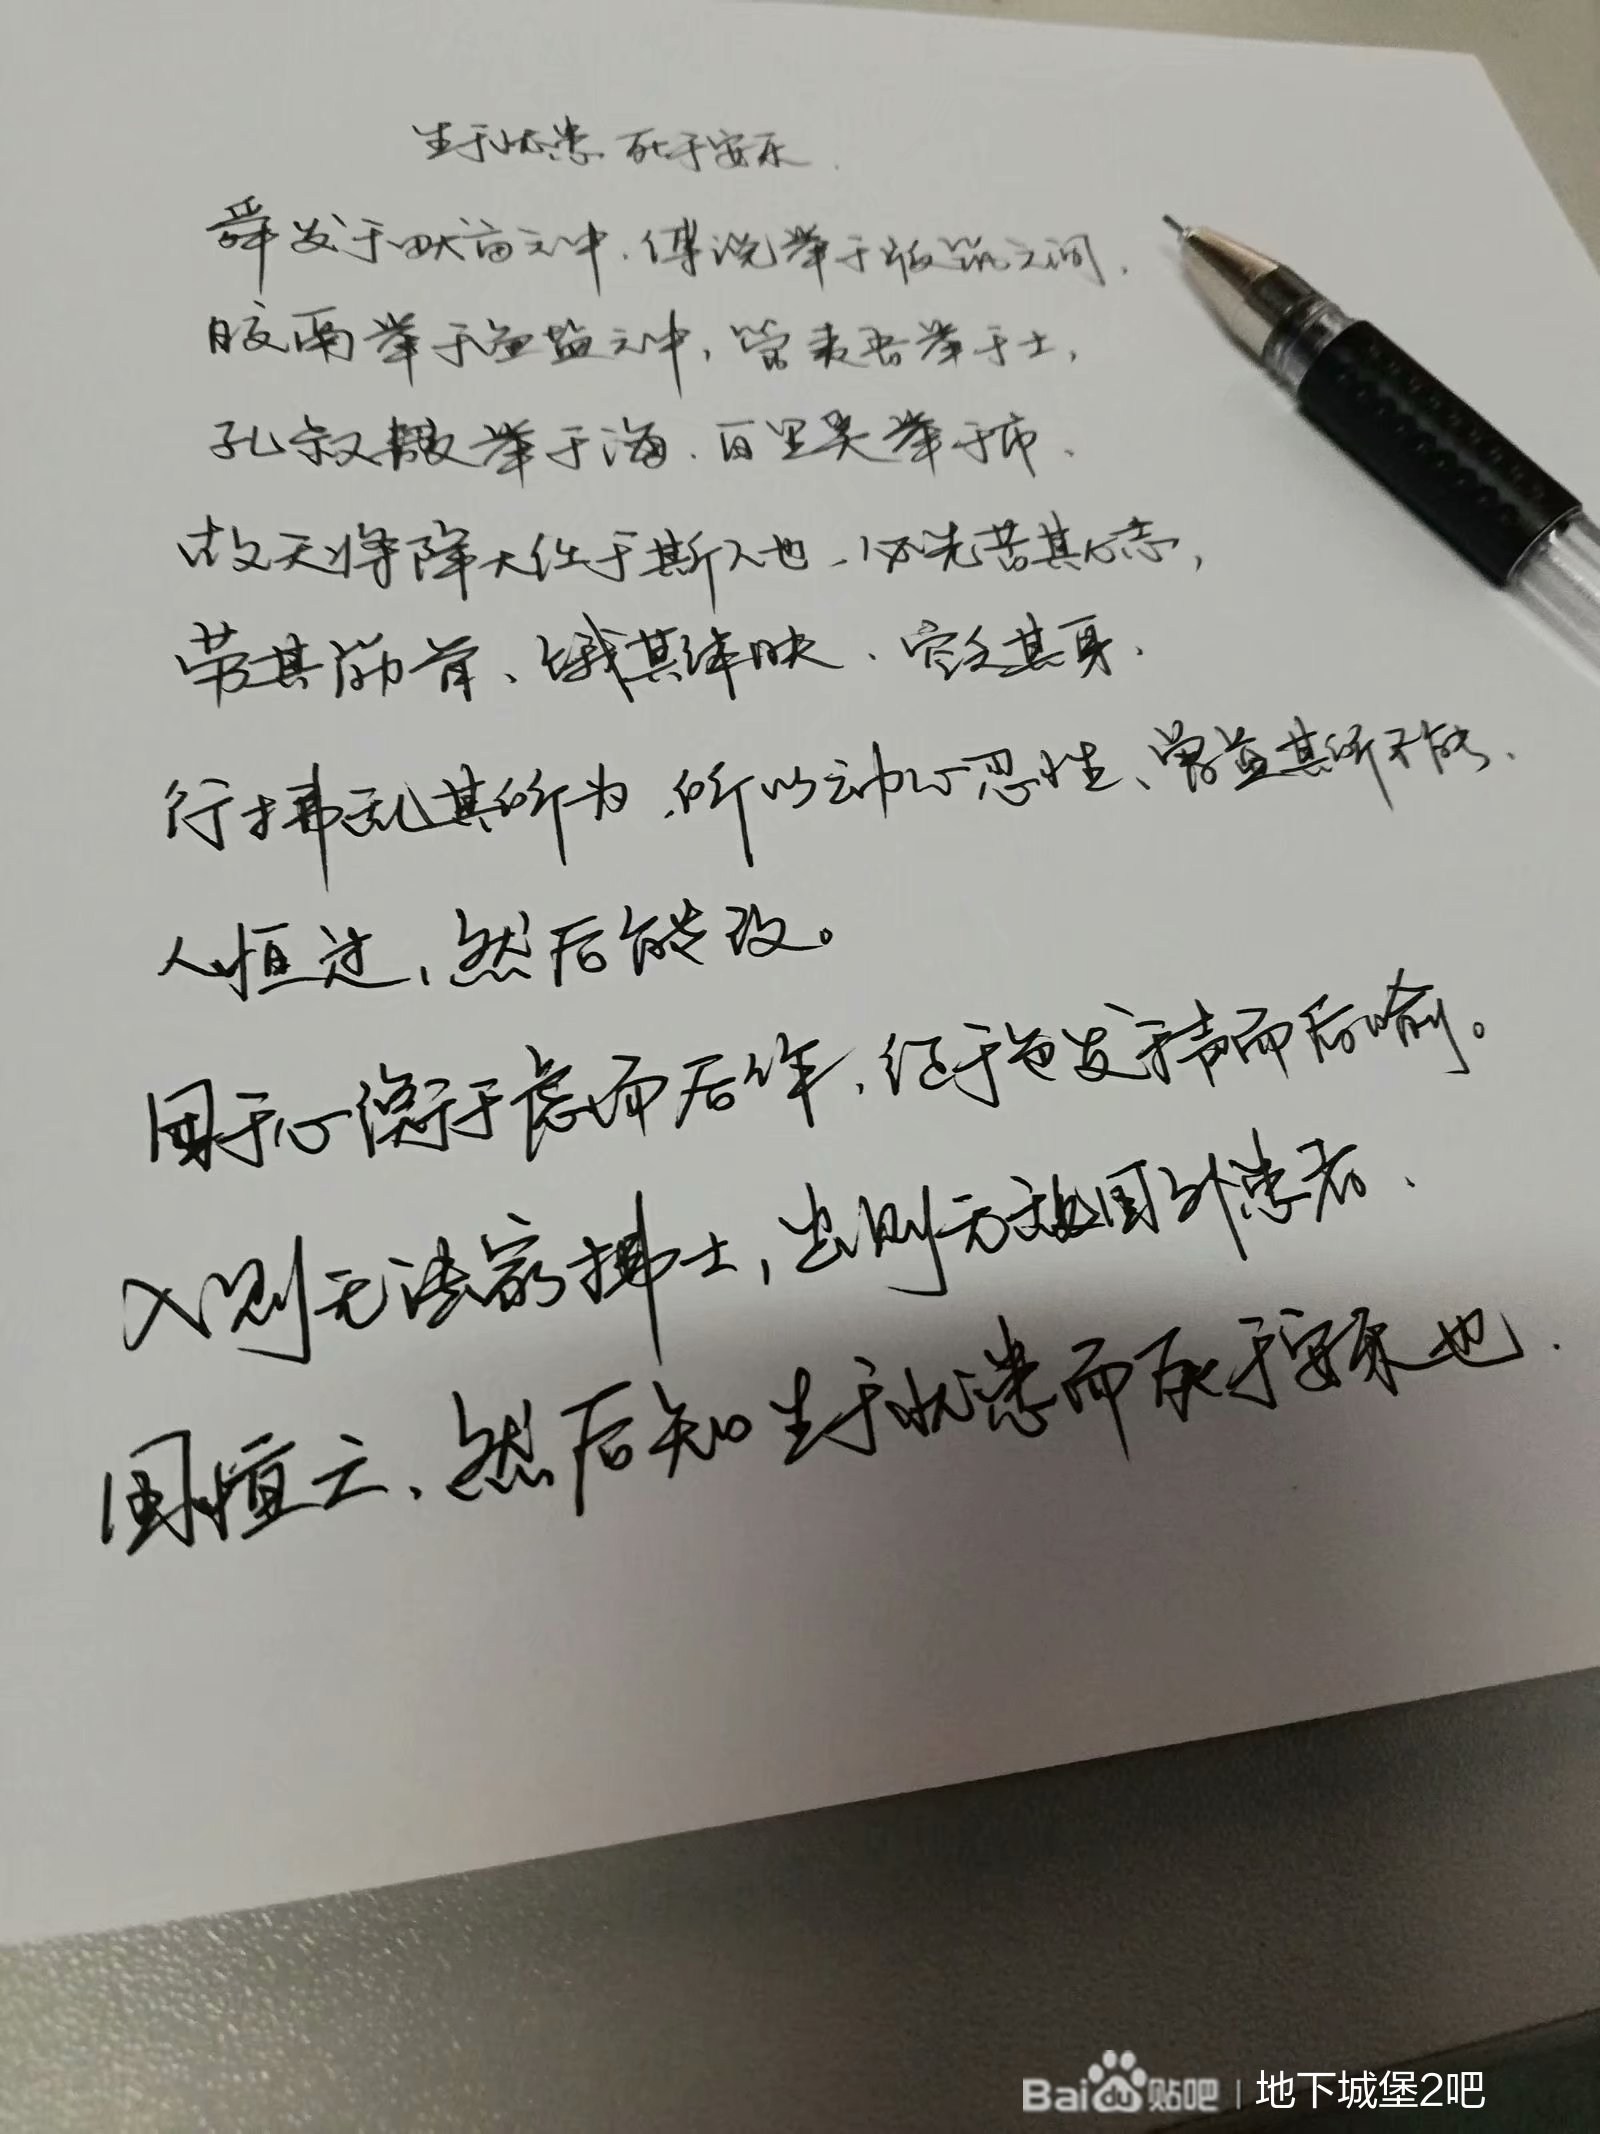 生于忧患 死于安乐.
舜发于畎亩之中.傅说举于版筑之间.
胶鬲举于鱼盐之中,管夷吾举于士,
孔叔敖举于海.百里奚举于市.
故天将降大任于斯人也.必先苦其心志,
劳其筋骨、饿其体肤.空乏其身.
行拂乱其所为.所以动心忍性、曾益其所不能.
人恒过,然后能改。
困于心衡于虑而后作,征于色发于声而后喻。
入则无法家拂士,出则无敌国外患者、
国恒亡、然后知生于忧患而死于安乐也.
Bai du 贴吧 | 地下城堡2吧